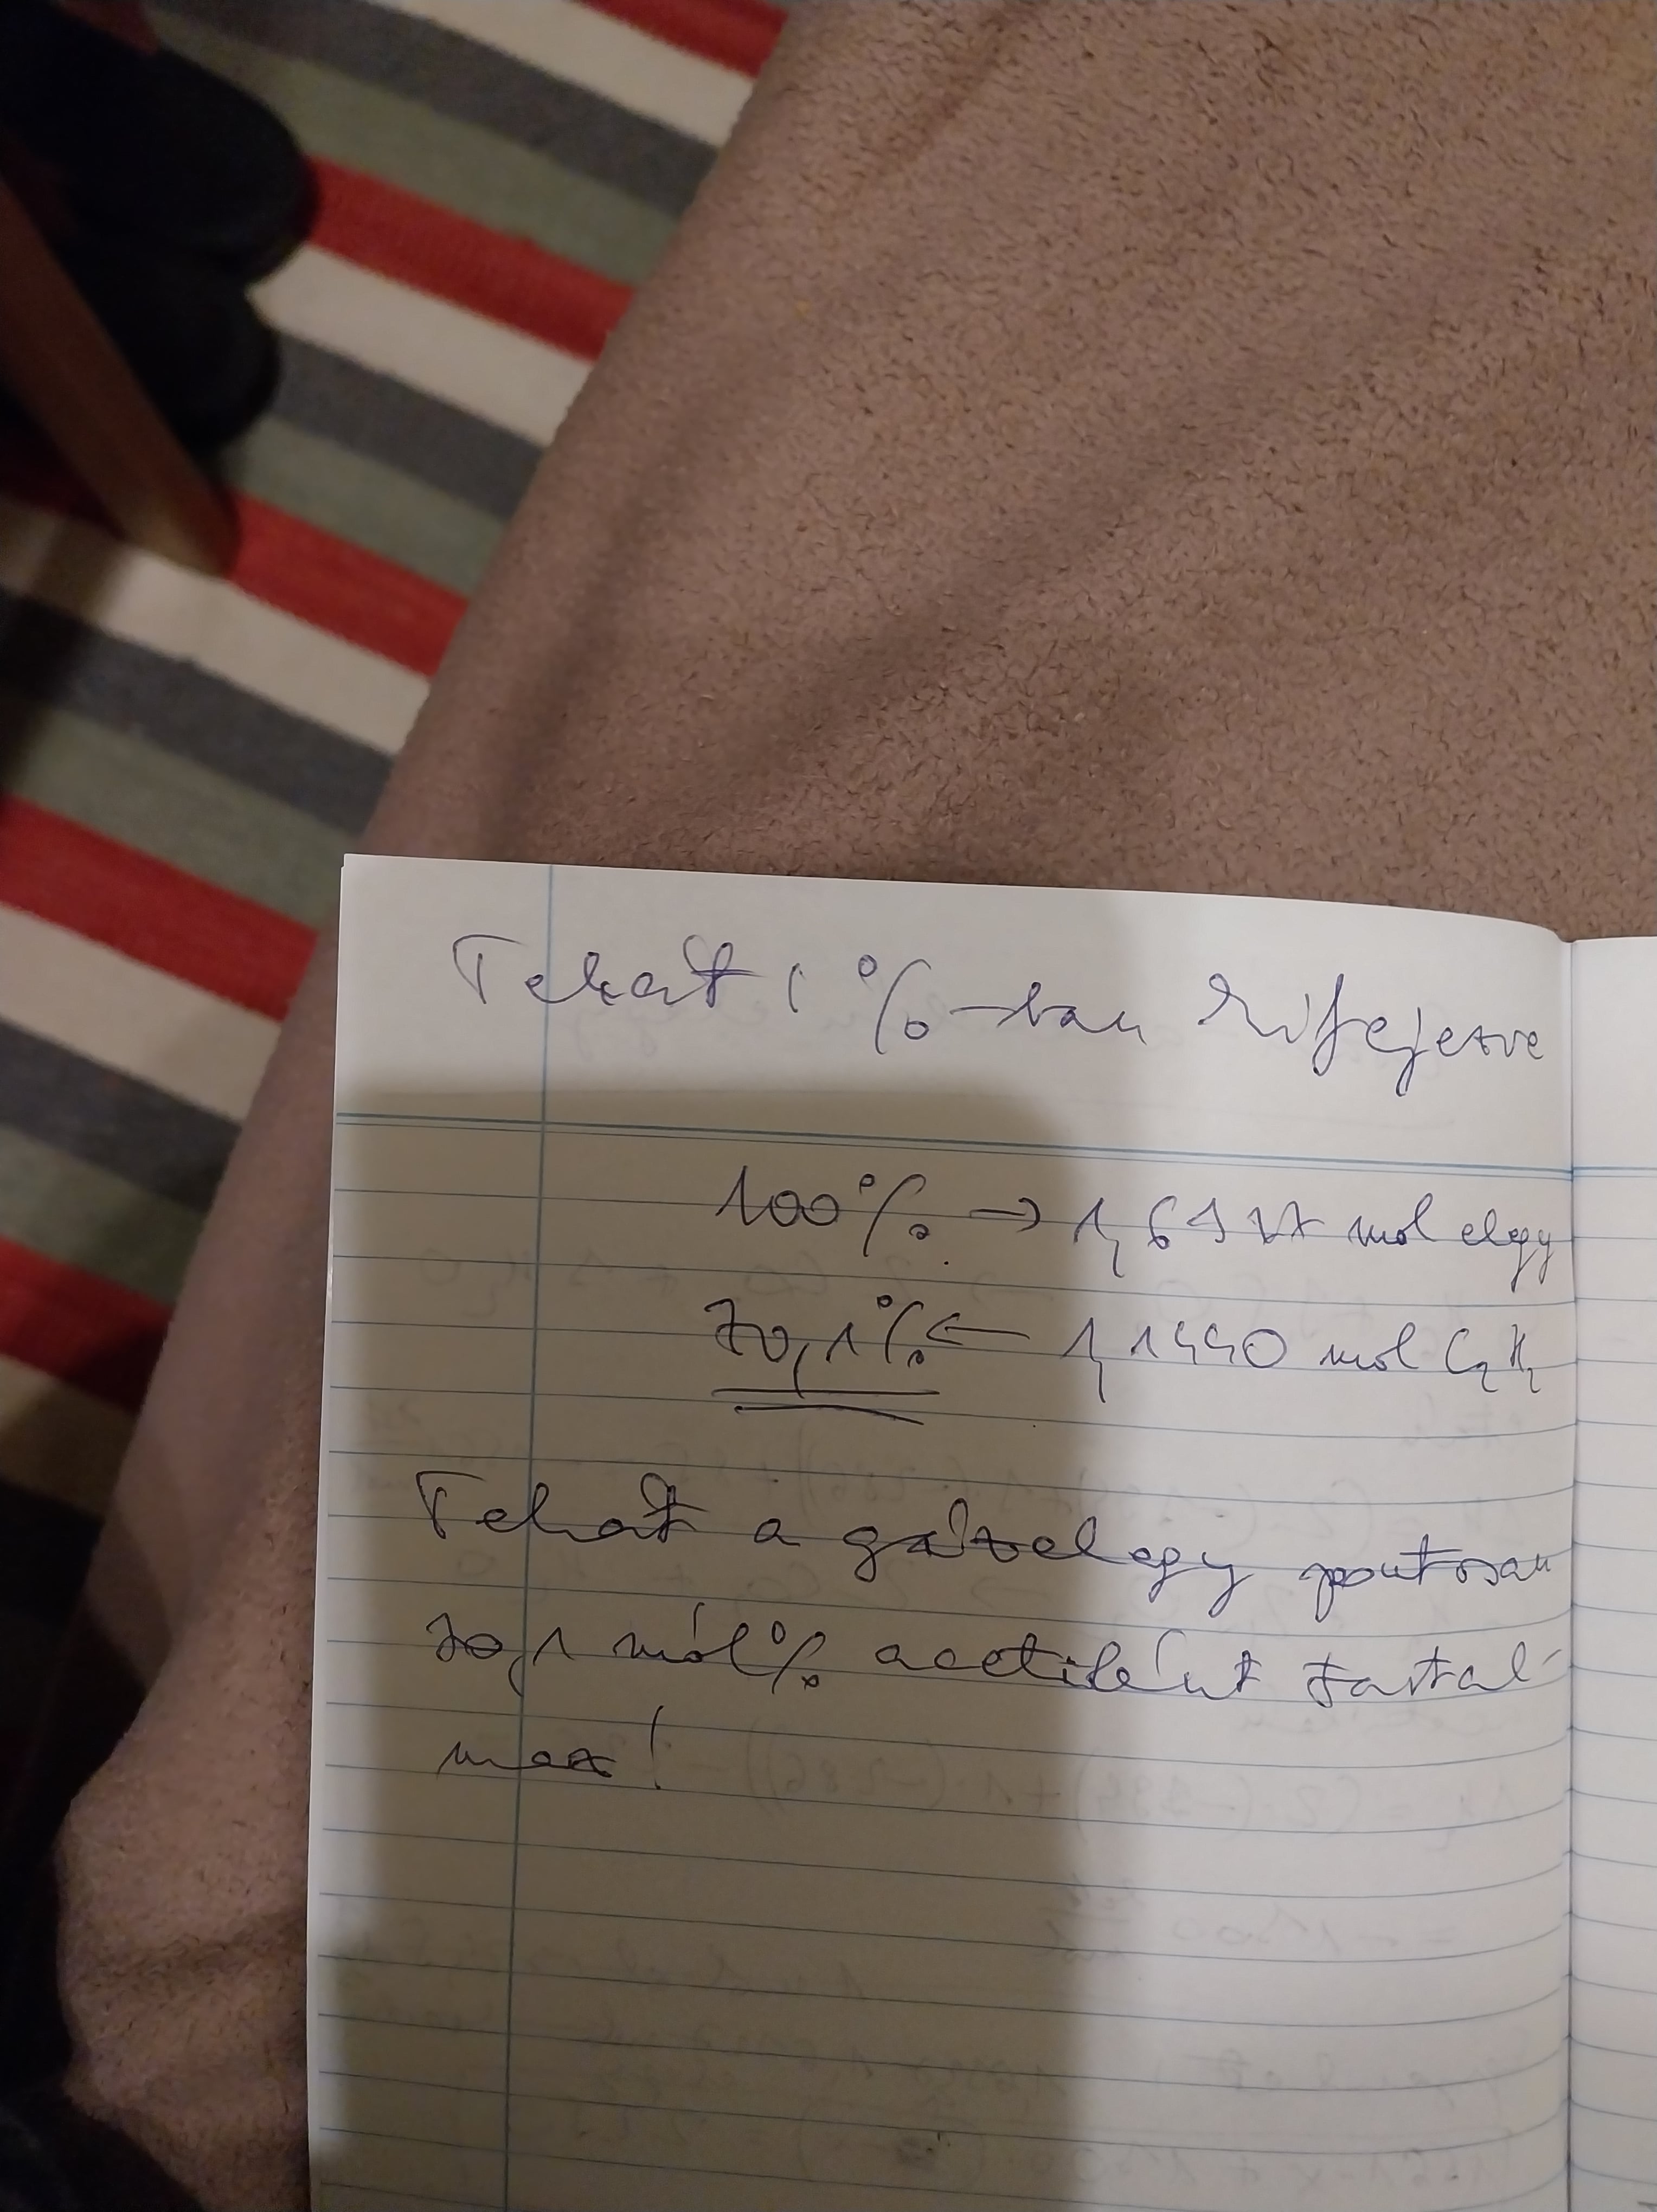 Tehát: %-ban kifejezve
100% → 1,6317 mol elegy
70,1% ← 1,1440 mol C₂H₂
Tehát a gázelegy pontosan
70,1 mól% acetilént tartal-
maz!